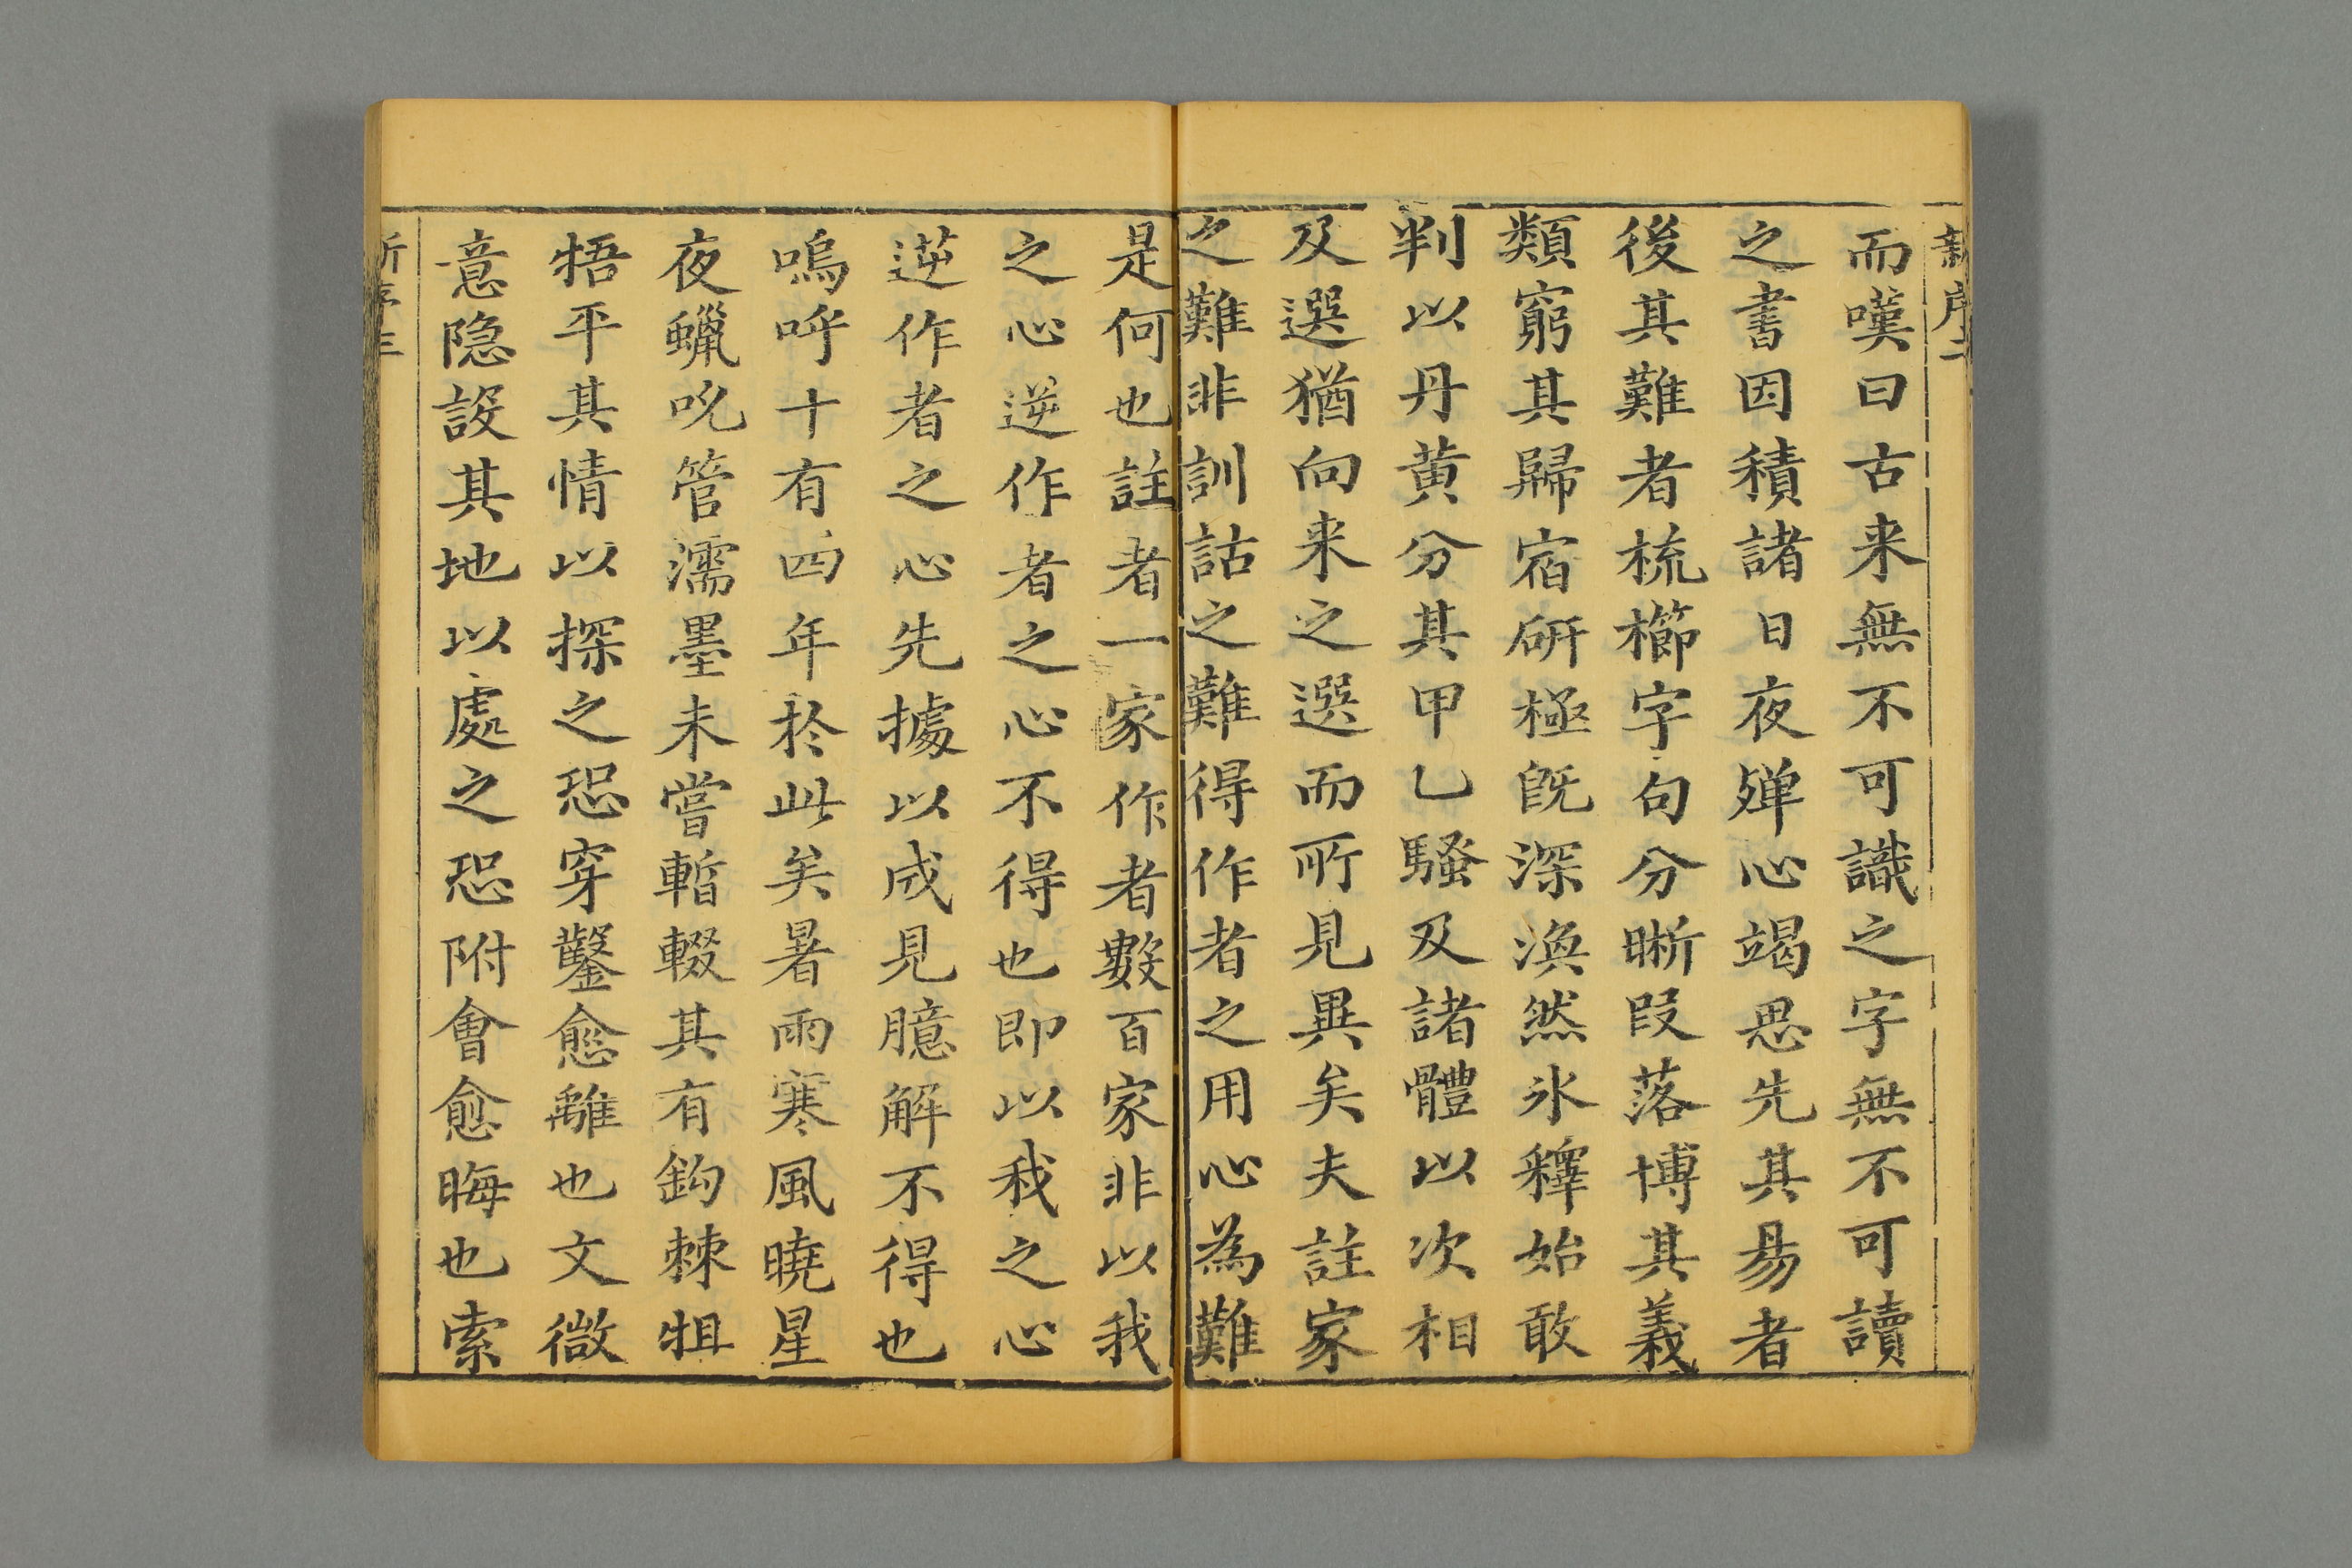 新序二
而嘆曰古来無不可識之字無不可讀
之書因積諸日夜殫心竭思先其易者
後其難者梳櫛字句分晰段落博其義
類窮其歸宿研極旣深渙然氷釋始敢
判以丹黄分其甲乙騷及諸體以次相
及選猶向来之選而所見異矣夫註家
之難非訓詁之難得作者之用心為難
是何也註者一家作者數百家非以我
之心逆作者之心不得也即以我之心
逆作者之心先據以成見臆解不得也
嗚呼十有四年於此矣暑雨寒風曉星
夜蠟吮管濡墨未嘗暫輟其有鈎棘牴
牾平其情以探之恐穿鑿愈離也文微
意隐設其地以處之恐附會愈晦也索
新序三